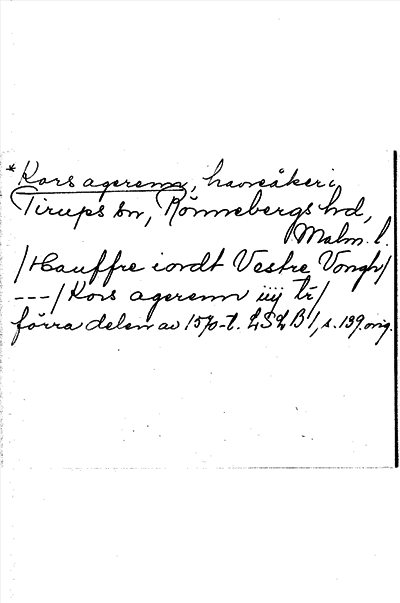 *Kors agerenn, havreåker i
Tirups sn, Rönnebergs hd,
Malm. l.
/Hauffre iordt Vestre Vongh/
---/Kors agerenn iiij tr/
förra delen av 1570-t. LSLB 1, s. 139. orig.